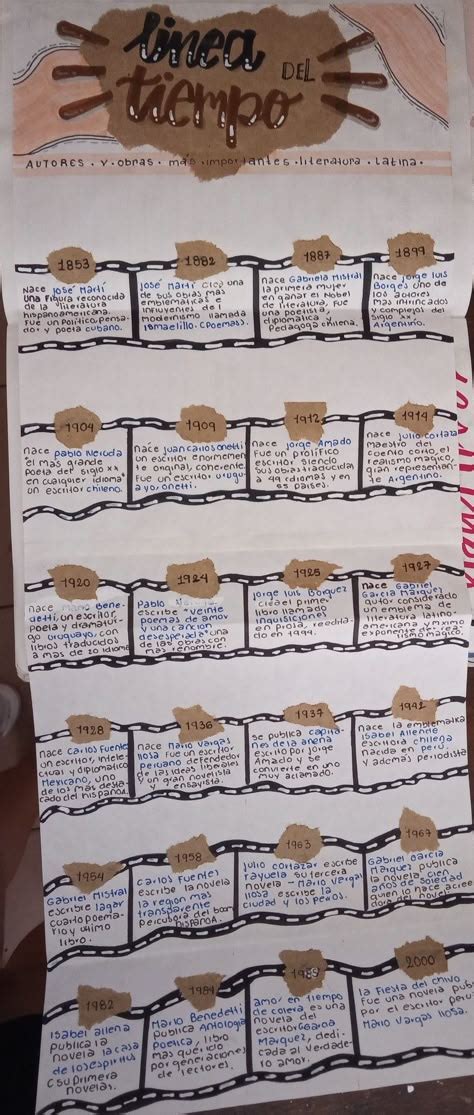 linea
DEL
tiempo
AUTORES . Y . obras . más . importantes . literatura . latina .
1853
Nace José Martí
una figura reconocida
de la "literatura
hispanoamericana.
Fue un político, pensa-
dor y poeta cubano.
1882
José Martí creo una
de sus obras más
emblemáticas e
influyentes del
modernismo llamada
Ismaelillo. (Poemas).
1887
Nace Gabriela Mistral
la primera mujer
en ganar el Nobel
de literatura, fue
una poetista,
diplomática y
Pedagoga chilena.
1899
nace Jorge luis
Borges uno de
los autores
más intrincados
y complejos del
siglo xx,
Argentino.
1904
nace pablo Neruda
el más grande
poeta del siglo xx
en cualquier idioma"
un escritor chileno.
1909
nace juan carlos onetti
un escritor enormemen-
te original, coherente.
Fue un escritor urugu-
ayo, onetti.
1912
nace Jorge Amado
Fue un prolífico
escritor siendo
sus obras traducidas
a 49 idiomas y en
55 países.
1914
nace julio cortaza
maestro del
cuento corto, el
realismo mágico,
gran representan-
te Argentino.
1920
nace Mario Bene-
detti, un escritor,
poeta y dramatur-
go uruguayo, con
libros traducidos
a más de 20 idioma
1924
Pablo
escribe "veinte
poemas de amor
y una canción
desesperada" una
de las obras con
más renombre.
1925
Jorge luis Borquez
crea el primer
libro llamado
inquisiciones
en prosa, reedita-
do en 1994.
1927
nace Gabriel
García Márquez
autor considerado
emblema de
literatura latino-
americana y máximo
exponente del rea-
lismo mágico.
1928
nace Carlos Fuente
un escritor, intele
ctual y diplomático
Mexicano, uno
de los más desta
cado del hispano.
1936
nace Mario Vargas
llosa fue un escritor
peruano defendedor
de las ideas liberales
y un gran novelista
y ensayista.
1937
se publica capita-
nes de la arena
escrito por Jorge
Amado y se
convierte en uno
muy aclamado.
1942
nace la emblemática
Isabel Allende
escritora chilena
nacida en perú
y además periodista
1954
Gabriel Mistral
escribre lagar
cuarto poema-
rio y último
libro.
1958
Carlos Fuentes
escribe la novela
la región más
transparente
percubora del boom
hispano.
1963
Julio cortázar escribe
rayuela su tercera
novela - Mario Vergas
llosa escribe la
ciudad y los peros.
1967
Gabriel García
Márquez publica
la novela cien
años de soledad
quien lo hace acree
dora del novela
1982
ISabel allena
Publica la
novela la casa
de los espíritus
(su primera
novelas.
1984
Mario Benedetti
publica Antología
poética, libro
más querido
por generaciones
de lectores.
1985
amor en tiempo
de colera es una
novela del
escritor García
Márquez, dedi-
cada al verdade-
ro amor.
2000
la Fiesta del chivo
Fue una novela pub
por el escritor per
Mario Vargas llosa.